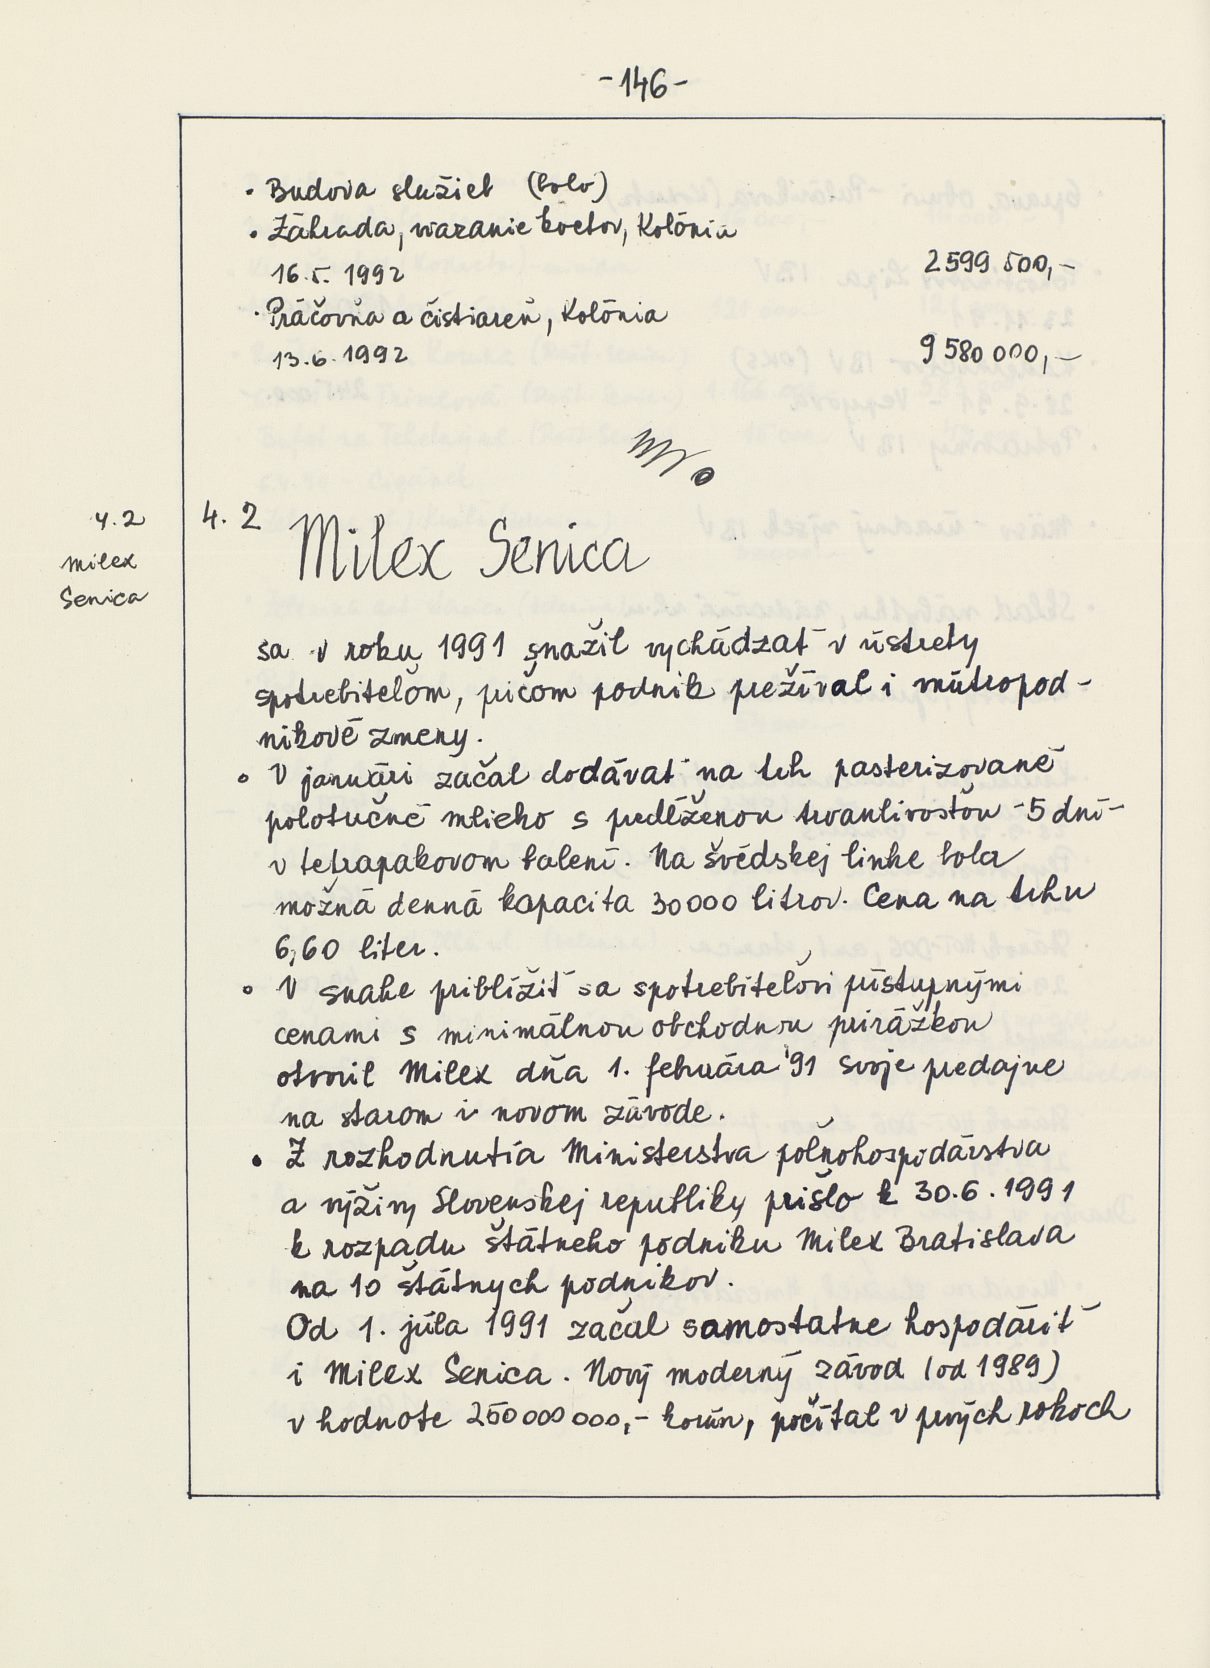 -146-
• Budova služieb (bolo)
• Záhrada, viazanie kvetov, Kolónia
16.5. 1992 2 599 500,-
• Práčovňa a čistiareň, Kolónia
13.6.1992 9 580 000,-
4.2
Milex
Senica
4.2 Milex Senica
sa v roku 1991 snažil vychádzať v ústrety
spotrebiteľom, pričom podnik prežíval i vnútropod-
nikové zmeny.
• V januári začal dodávať na trh pasterizované
polotučné mlieko s predĺženou trvanlivosťou -5 dní-
v tetrapakovom balení. Na švédskej linke bola
možná denná kapacita 30000 litrov. Cena na trhu
6,60 liter.
• V snahe priblížiť sa spotrebiteľovi prístupnými
cenami s minimálnou obchodnou prirážkou
otvoril Milex dňa 1. februára '91 svoje predajne
na starom i novom závode.
• Z rozhodnutia Ministerstva poľnohospodárstva
a výživy Slovenskej republiky prišlo k 30.6.1991
k rozpadu štátneho podniku Milex Bratislava
na 10 štátnych podnikov.
Od 1. júla 1991 začal samostatne hospodáriť
i Milex Senica. Nový moderný závod (od 1989)
v hodnote 250 000 000,- korún, počítal v prvých rokoch